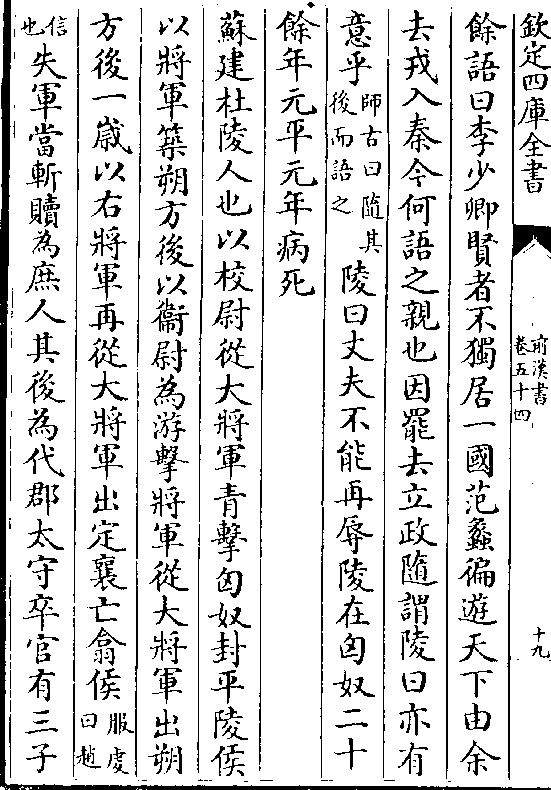 欽定四庫全書
前漢書
卷五十四
十九
餘語曰李少卿賢者不獨居一國范蠡徧遊天下由余
去戎入秦今何語之親也因罷去立政隨謂陵曰亦有
意乎師古曰隨其後而語之陵曰丈夫不能再辱陵在匈奴二十
餘年元平元年病死
蘇建杜陵人也以校尉從大將軍青擊匈奴封平陵侯
以將軍築朔方後以衞尉為游擊將軍從大將軍出朔
方後一歲以右將軍再從大將軍出定襄亡翕侯服虔曰趙
信也失軍當斬贖為庶人其後為代郡太守卒官有三子